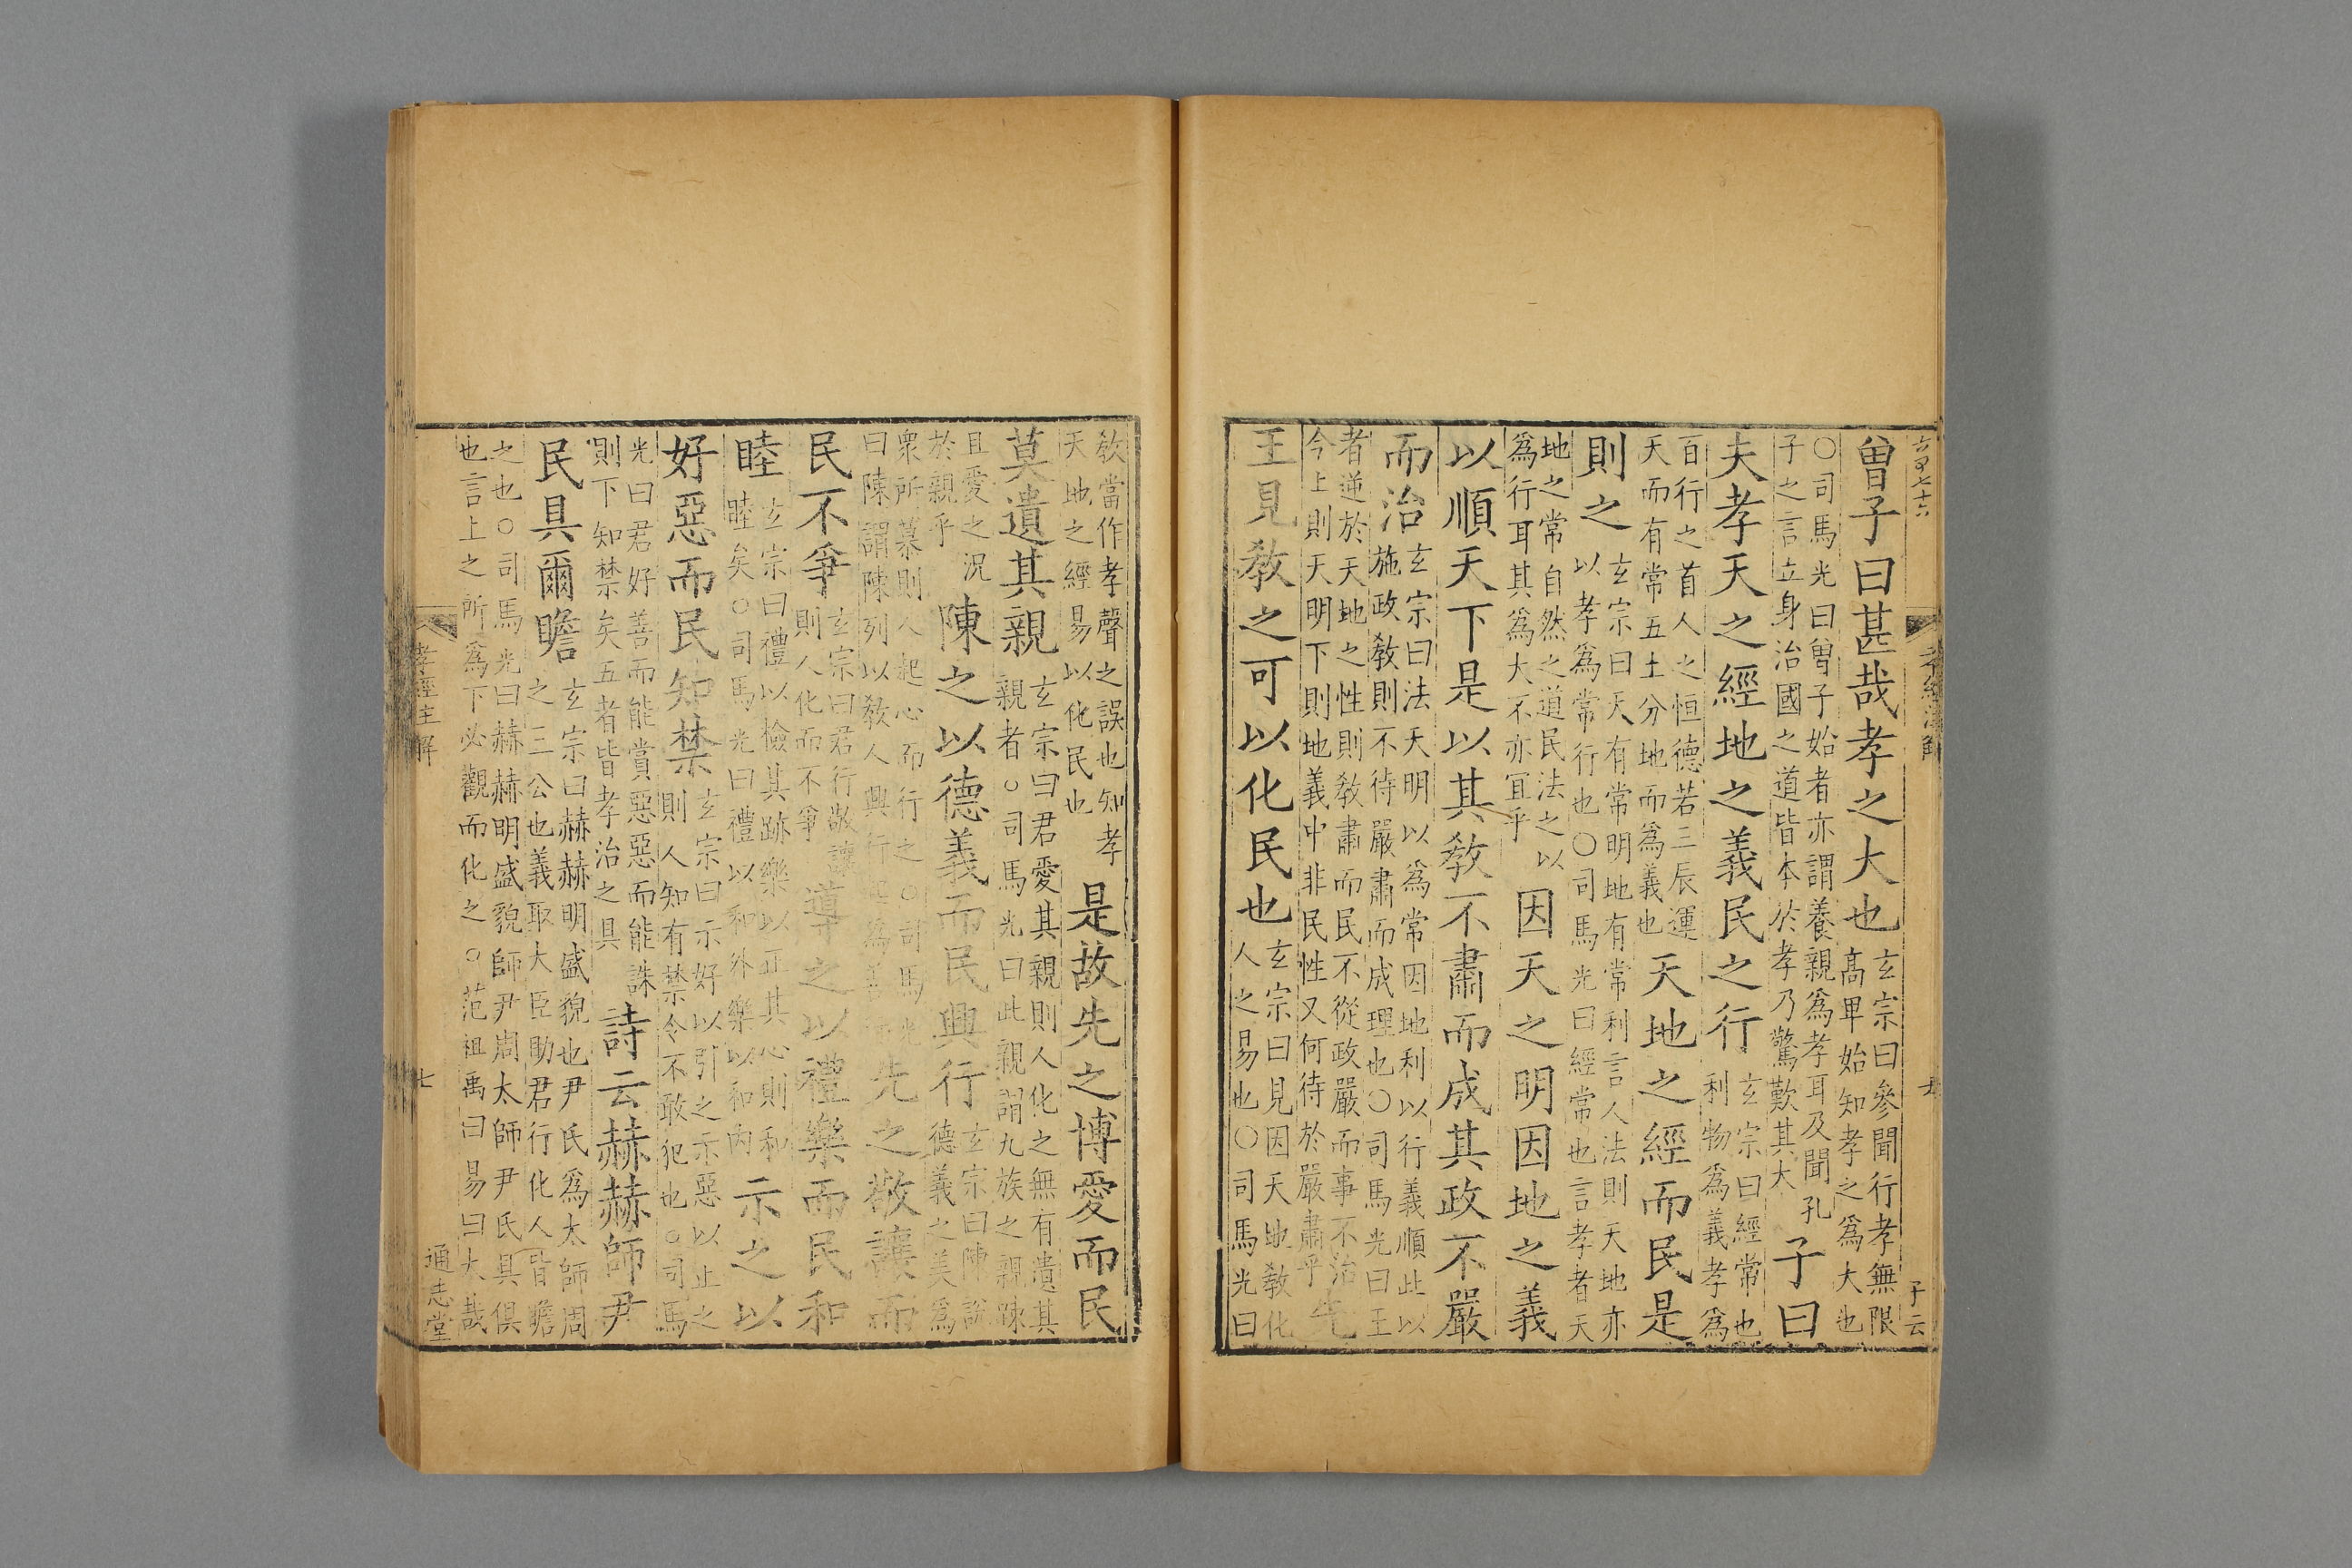 曾子曰甚哉孝之大也玄宗曰參聞行孝無限
高卑始知孝之爲大也
○司馬光曰曽子始者亦謂養親爲孝耳及聞孔
子之言立身治國之道皆本於孝乃驚歎其大子曰
夫孝天之經地之義民之行玄宗曰經常也
利物爲義孝爲
百行之首人之恒德若三辰運
天而有常五土分地而爲義也天地之經而民是
則之玄宗曰天有常明地有常利言人法則天地亦
以孝爲常行也○司馬光曰經常也言孝者天
地之常自然之道民法之以
爲行耳其爲大不亦宜乎因天之明因地之義
以順天下是以其敎不肅而成其政不嚴
而治玄宗曰法天明以爲常因地利以行義順此以
施政敎則不待嚴肅而成理也○司馬光曰王
者逆於天地之性則敎肅而民不從政嚴而事不治
今上則天明下則地義中非民性又何待於嚴肅乎先
王見敎之可以化民也玄宗曰見因天地敎化
人之易也○司馬光曰
敎當作孝聲之誤也知孝
天地之經易以化民也是故先之博愛而民
莫遺其親玄宗曰君愛其親則人化之無有遺其
親者○司馬光曰此親謂九族之親踈
且愛之況
於親乎陳之以德義而民興行玄宗曰陳說
德義之美爲
衆所慕則人起心而行之○司馬光
曰陳謂陳列以敎人興行起爲善先之敬讓而
民不爭玄宗曰君行敬讓
則人化而不爭導之以禮樂而民和
睦玄宗曰禮以檢其跡樂以正其心則和
睦矣○司馬光曰禮以和外樂以和內示之以
好惡而民知禁玄宗曰示好以引之示惡以止之
則人知有禁令不敢犯也○司馬
光曰君好善而能賞惡惡而能誅
則下知禁矣五者皆孝治之具詩云赫赫師尹
民具爾瞻玄宗曰赫赫明盛貌也尹氏爲太師周
之三公也義取大臣助君行化人皆瞻
之也○司馬光曰赫赫明盛貌師尹周太師尹氏具俱
也言上之所爲下必觀而化之○范祖禹曰易曰大哉
孝經主解
七
通志堂